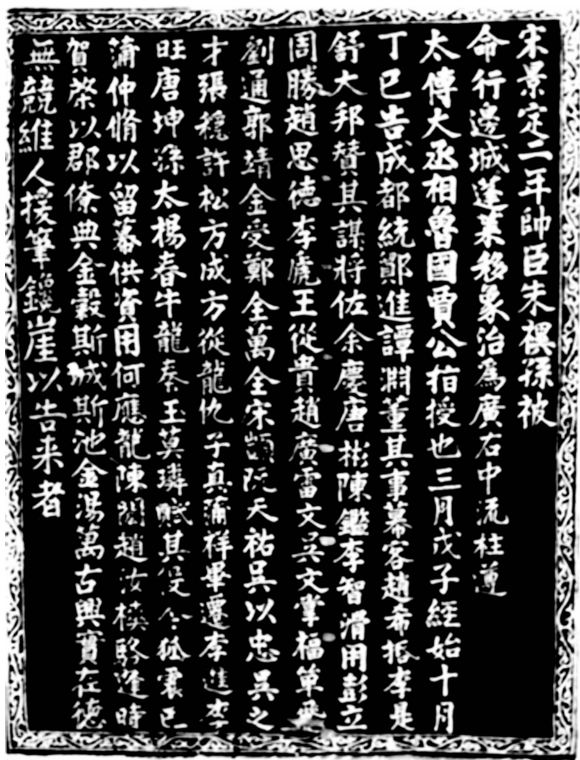 宋景定二年帥臣朱禩孫被
命行邊城蓬萊移象治為廣右中流柱遵
太傅大丞相魯國賈公指授也三月戊子經始十月
丁巳告成都統鄭進譚淵董其事幕客趙希抵李是
舒大邦贊其謀將佐余慶唐彬陳鑑李智滑用彭立
周勝趙思德李虎王從貴趙廣雷文吳文掌福單
劉通郭靖金受鄭全萬全宋顗阮天祐吳以忠吳之
才張穩許松方成方從龍仇子真蒲祥畢遷李進李
旺唐坤孫太楊春牛龍秦玉莫璘賦其役令狐震巳
蒲仲脩以留幕供資用何應龍陳閱趙汝楧駱逢時
賀榮以郡僚典金穀斯城斯池金湯萬古興實在德
無競維人援筆鑱崖以告來者